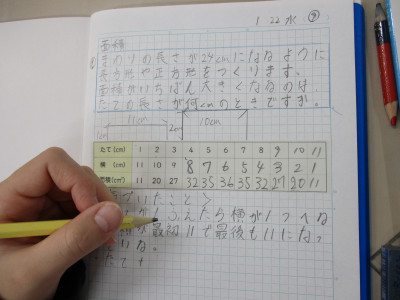 1 22 水 ⑨
面積
まわりの長さが24cmになるように
長方形や正方形をつくります。
面積がいちばん大きくなるのは、
たての長さが何cmのときですか。
11cm 10cm
1cm 2cm
たて(cm) 1 2 3 4 5 6 7 8 9 10 11
横 (cm) 11 10 9 8 7 6 5 4 3 2 1
面積(cm²) 11 20 27 32 35 36 35 32 27 20 11
づいたこと>
が1ふえたら横が1つへる
が最初11で最後も11になっ
いる。
たて+